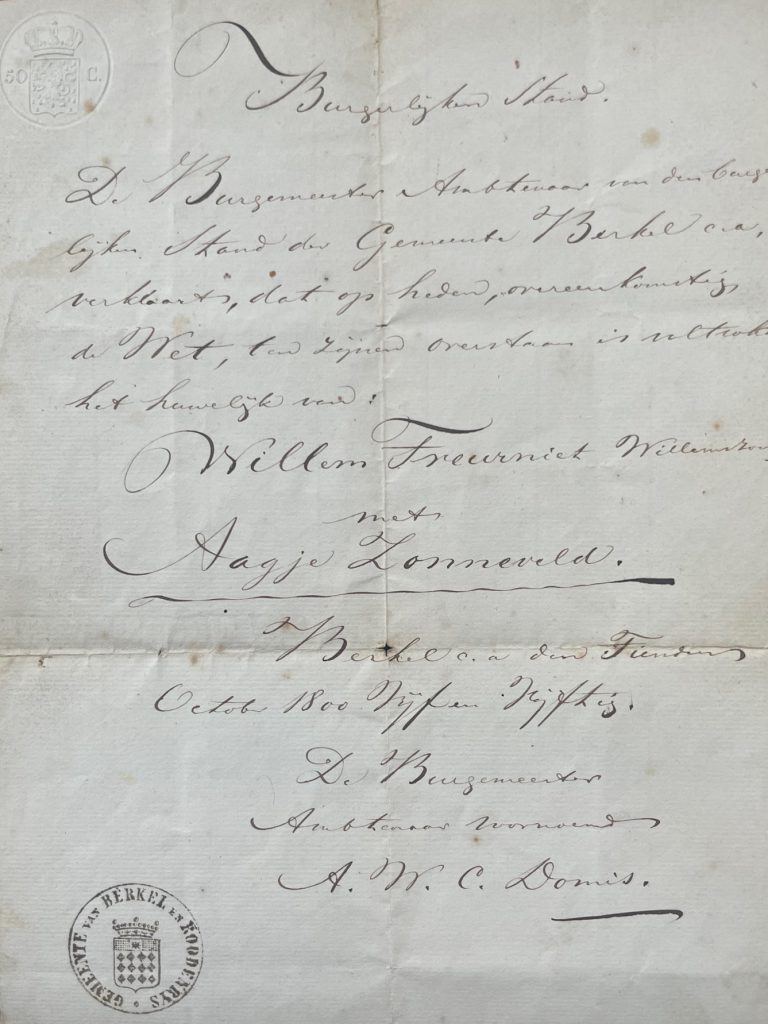 50 C.
Burgerlijken Stand.
De Burgemeester Ambtenaar van den burge
lijken Stand der Gemeente Berkel c.a,
verklaart, dat op heden, overeenkomstig
de Wet, ten zijnen overstaan is voltrokk
het huwelijk van:
Willem Treurniet Willemszoon
met
Aagje Zonneveld.
Berkel c.a den Tienden
October 1800 Vijf en Vijftig.
De Burgemeester
Ambtenaar voornoemd
A. W. C. Domis.
GEMEENTE VAN BERKEL EN ROODENRYS